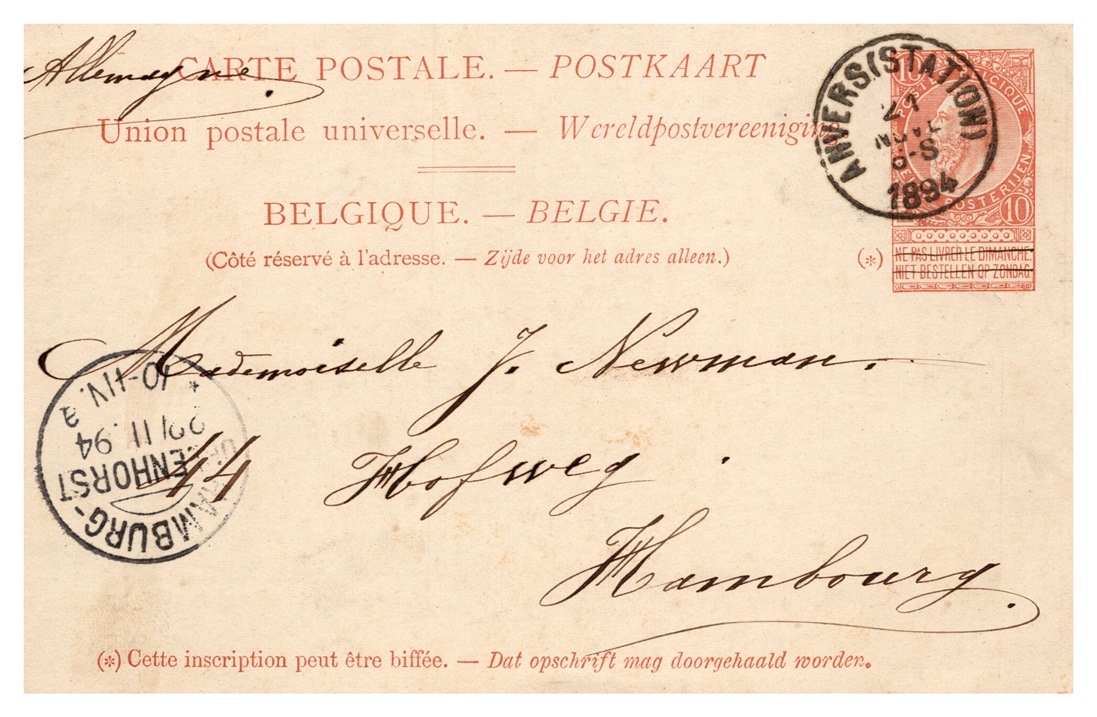 Allemagne
CARTE POSTALE. — POSTKAART
Union postale universelle. — Wereldpostvereeniging
BELGIQUE. — BELGIE.
(Côté réservé à l'adresse. — Zijde voor het adres alleen.)
ANVERS (STATION)
21
8-S
1894
10
BELGIQUE
POSTERIJEN
10
(*)
NE PAS LIVRER LE DIMANCHE.
NIET BESTELLEN OP ZONDAG.
Mademoiselle J. Newman.
44 Hofweg
Hambourg.
HAMBURG-
ENHORST
22/11.94
10-11V.
(*) Cette inscription peut être biffée. — Dat opschrift mag doorgehaald worden.